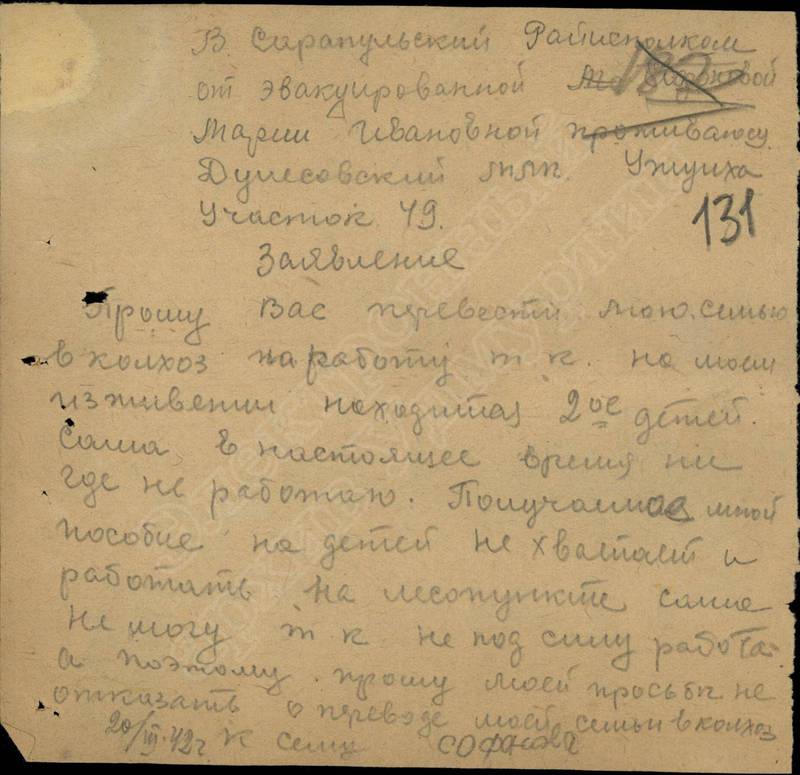 В Сарапульский Райисполком
от эвакуированной
182
Марии Ивановной проживающ.
Участок 49.
131
Заявление
Прошу Вас перевести мою семью
в колхоз на работу т к. на моем
изживении находится 2ое детей.
Сама в настоящее время ни
где не работаю. Получаемое мной
пособие на детей не хватает и
работать на лесопункте сама
не могу т к не под силу работа
а поэтому прошу моей просьбы не
отказать о переводе моей семьи в колхоз
20/III.42г К сему